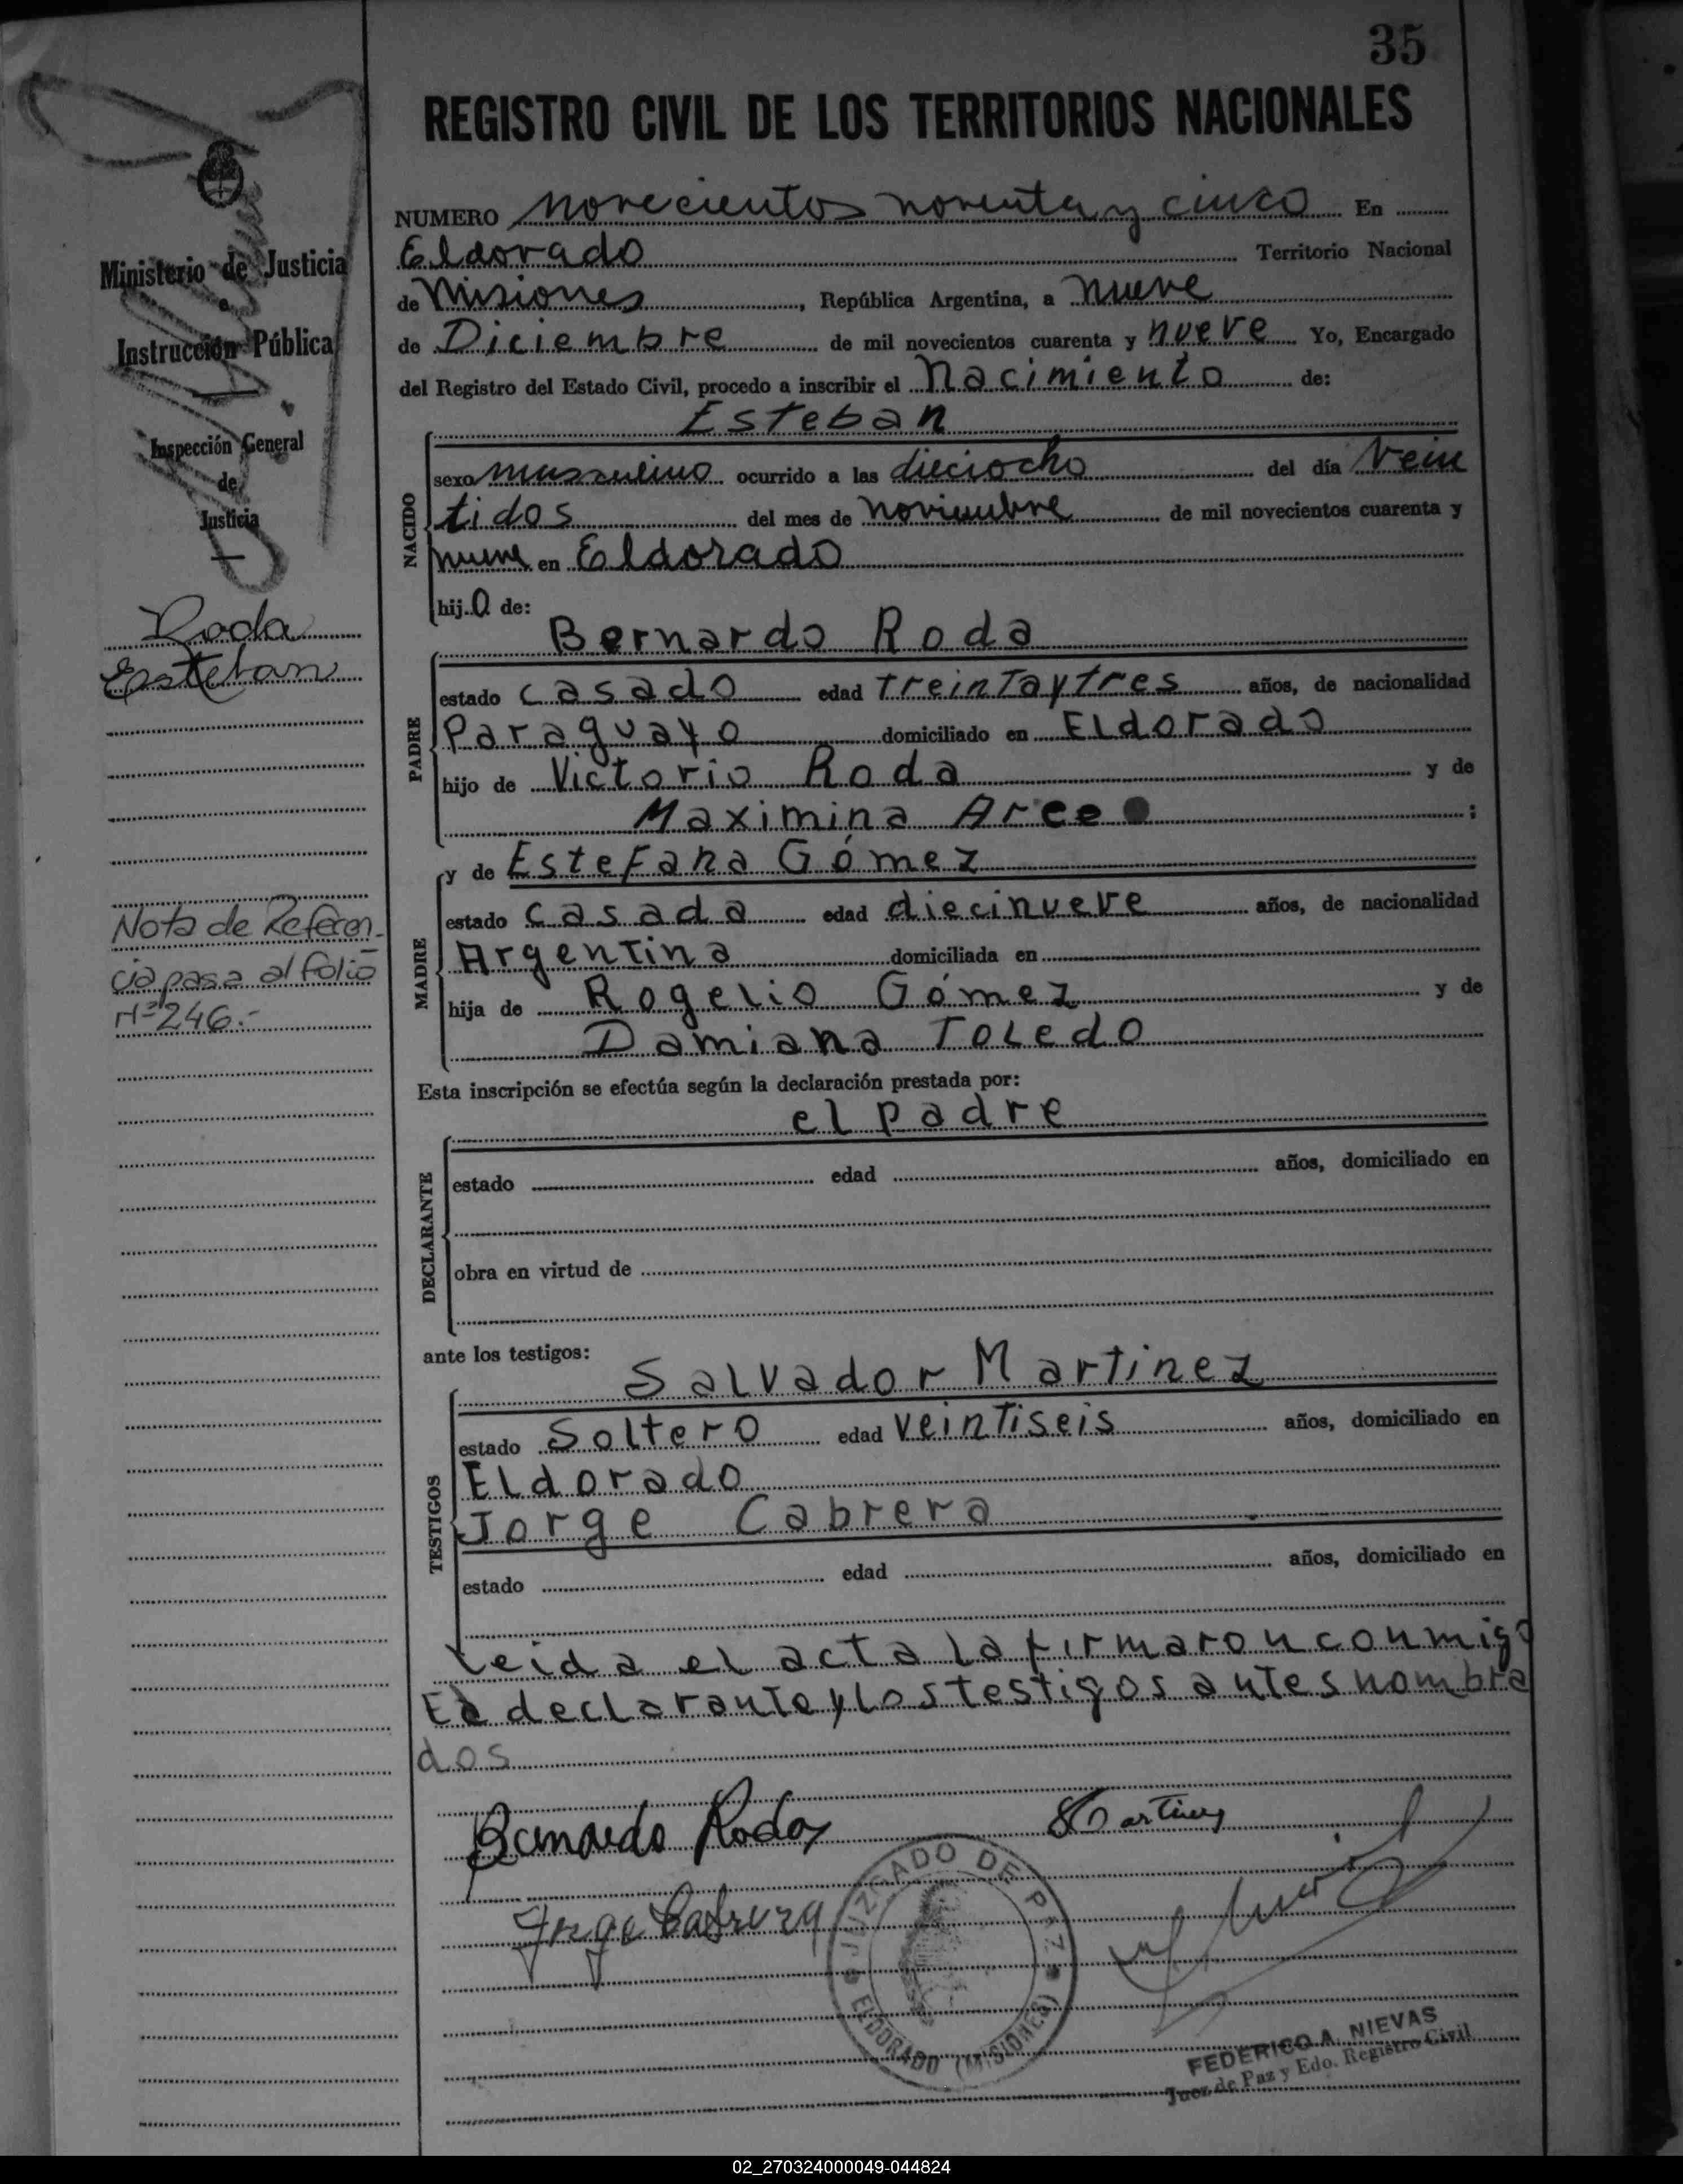 35
REGISTRO CIVIL DE LOS TERRITORIOS NACIONALES
Ministerio de Justicia
e
Instrucción Pública
Inspección General
de
Justicia
Roda
Esteban
Nota de Referen-
cia pasa al folio
Nº 246.-
NUMERO novecientos noventa y cinco En
Eldorado Territorio Nacional
de Misiones, República Argentina, a nueve
de Diciembre de mil novecientos cuarenta y nueve Yo, Encargado
del Registro del Estado Civil, procedo a inscribir el Nacimiento de:
NACIDO
Esteban
sexo masculino ocurrido a las dieciocho del día vein
tidos del mes de noviembre de mil novecientos cuarenta y
nueve en Eldorado
hijo de:
PADRE
Bernardo Roda
estado casado edad treintaytres años, de nacionalidad
Paraguayo domiciliado en Eldorado
hijo de Victorio Roda y de
Maximina Arce ;
MADRE
y de Estefana Gómez
estado casada edad diecinueve años, de nacionalidad
Argentina domiciliada en
hija de Rogelio Gómez y de
Damiana Toledo
Esta inscripción se efectúa según la declaración prestada por:
DECLARANTE
el padre
estado edad años, domiciliado en
obra en virtud de
ante los testigos:
TESTIGOS
Salvador Martinez
estado Soltero edad veintiseis años, domiciliado en
Eldorado
Jorge Cabrera
estado edad años, domiciliado en
Leida el acta la firmaron conmigo
El declarante y los testigos antes nombra
dos
Bernardo Roda
SMartinez
Jorge Cabrera
JUZGADO DE PAZ
ELDORADO (MISIONES)
FEDERICO A. NIEVAS
Juez de Paz y Edo. Registro Civil
02_270324000049-044824